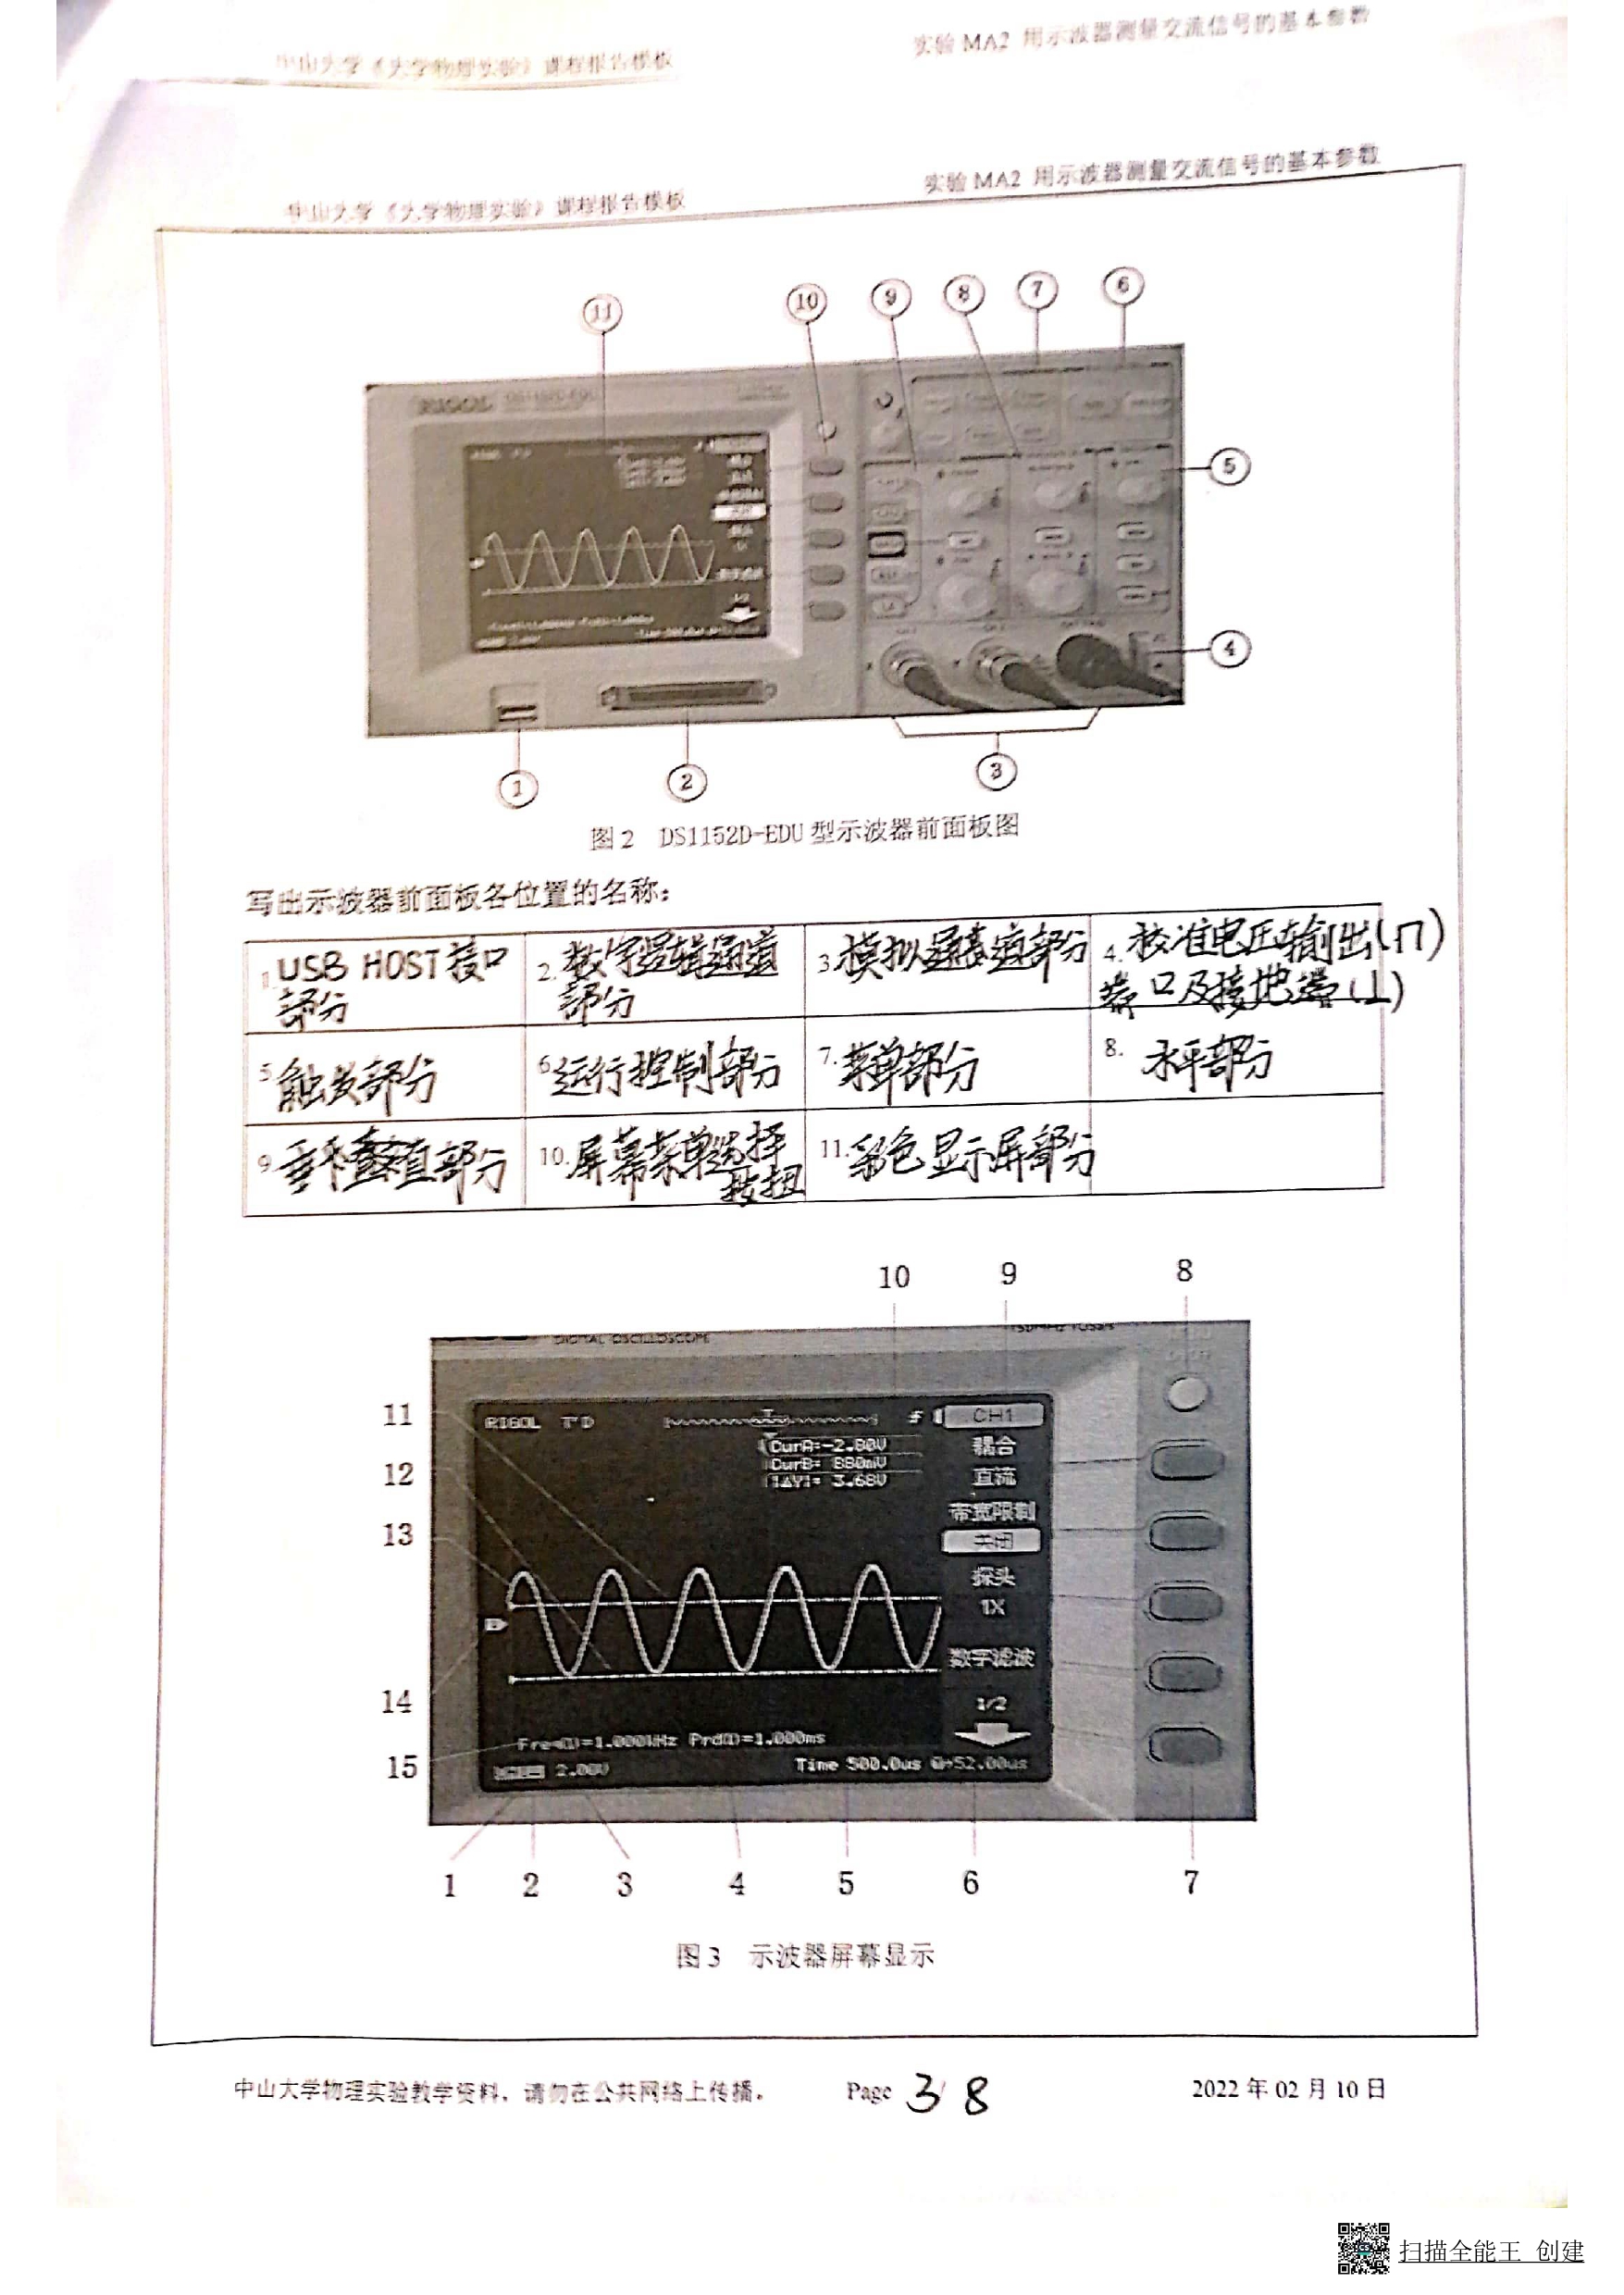 中山大学《大学物理实验》课程报告模板
实验 MA2 用示波器测量交流信号的基本参数
中山大学《大学物理实验》课程报告模板
实验 MA2 用示波器测量交流信号的基本参数
11
10
9
8
7
6
RIGOL
5
4
1
2
3
图 2 DS1152D-EDU 型示波器前面板图
写出示波器前面板各位置的名称：
1. USB HOST 接口
部分
2. 数字逻辑通道
部分
3. 模拟通道部分
4. 校准电压输出(⊓)
端口及接地端(⊥)
5. 触发部分
6. 运行控制部分
7. 菜单部分
8. 水平部分
9. 垂直部分
10. 屏幕菜单选择
按扭
11. 彩色显示屏部分
10
9
8
DIGITAL OSCILLOSCOPE
RIGOL T'D
CH1
CurA=-2.80V
CurB= 880mV
|ΔY|= 3.68V
耦合
直流
带宽限制
关闭
探头
1X
数字滤波
1/2
11
12
13
14
15
Freq(1)=1.000kHz Prd(1)=1.000ms
2.00V
Time 500.0us
52.00us
1
2
3
4
5
6
7
图 3 示波器屏幕显示
中山大学物理实验教学资料，请勿在公共网络上传播。
Page 3 8
2022 年 02 月 10 日
扫描全能王 创建